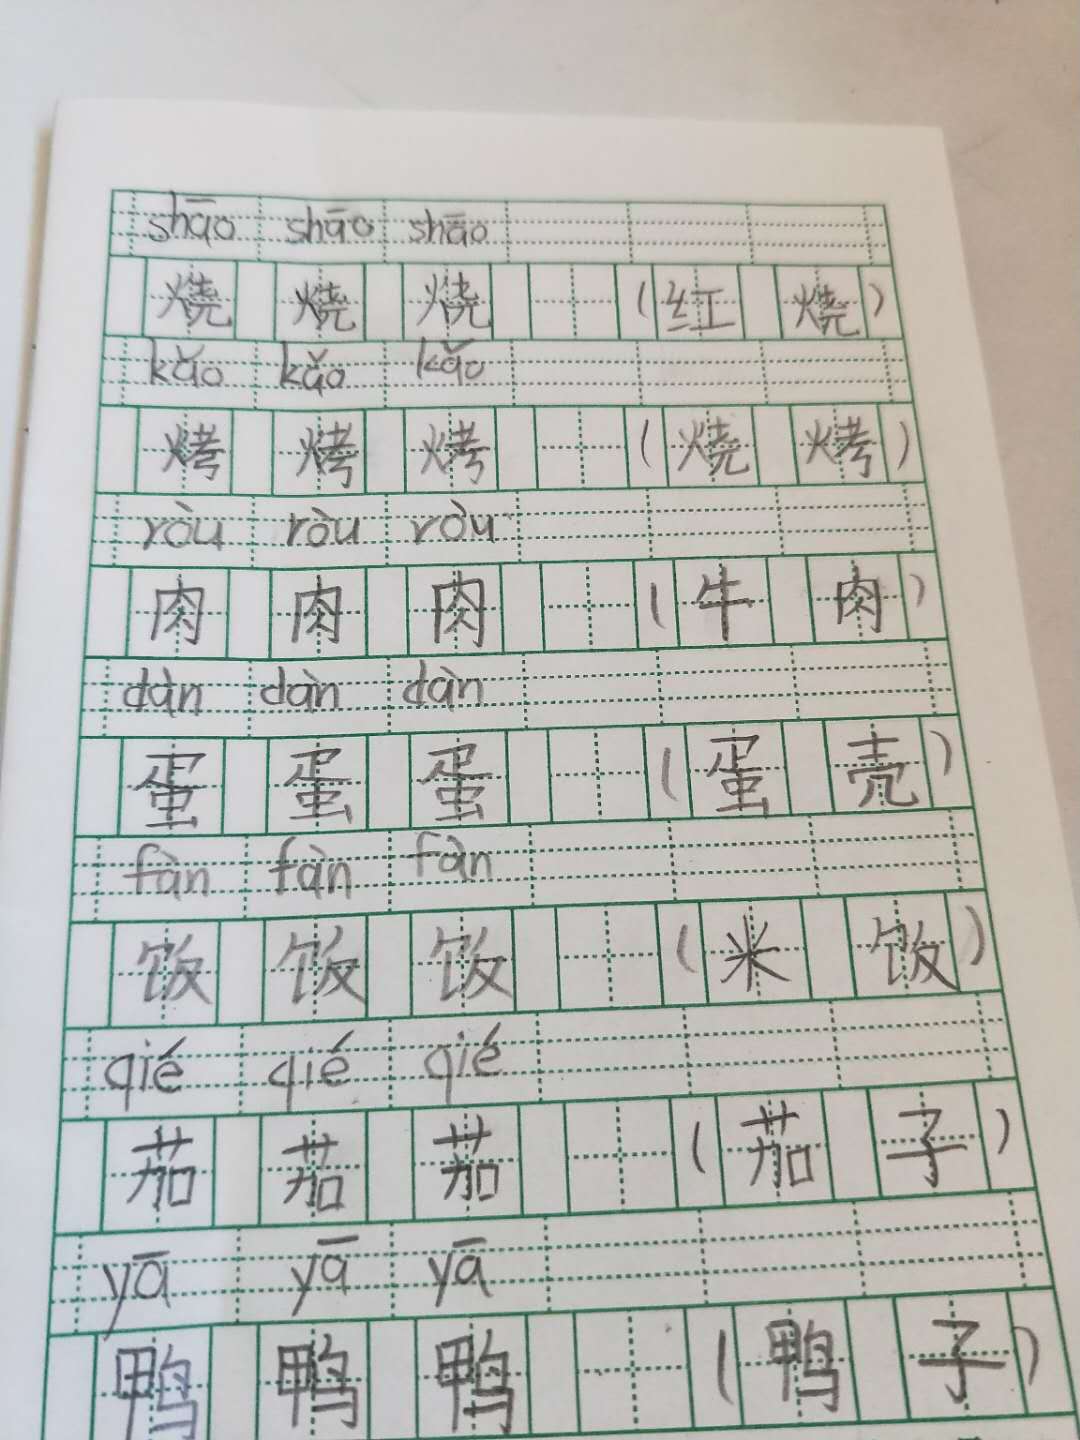 shāo shāo shāo
烧 烧 烧 (红 烧)
kǎo kǎo kǎo
烤 烤 烤 (烧 烤)
ròu ròu ròu
肉 肉 肉 (牛 肉)
dàn dàn dàn
蛋 蛋 蛋 (蛋 壳)
fàn fàn fàn
饭 饭 饭 (米 饭)
qié qié qié
茄 茄 茄 (茄 子)
yā yā yā
鸭 鸭 鸭 (鸭 子)